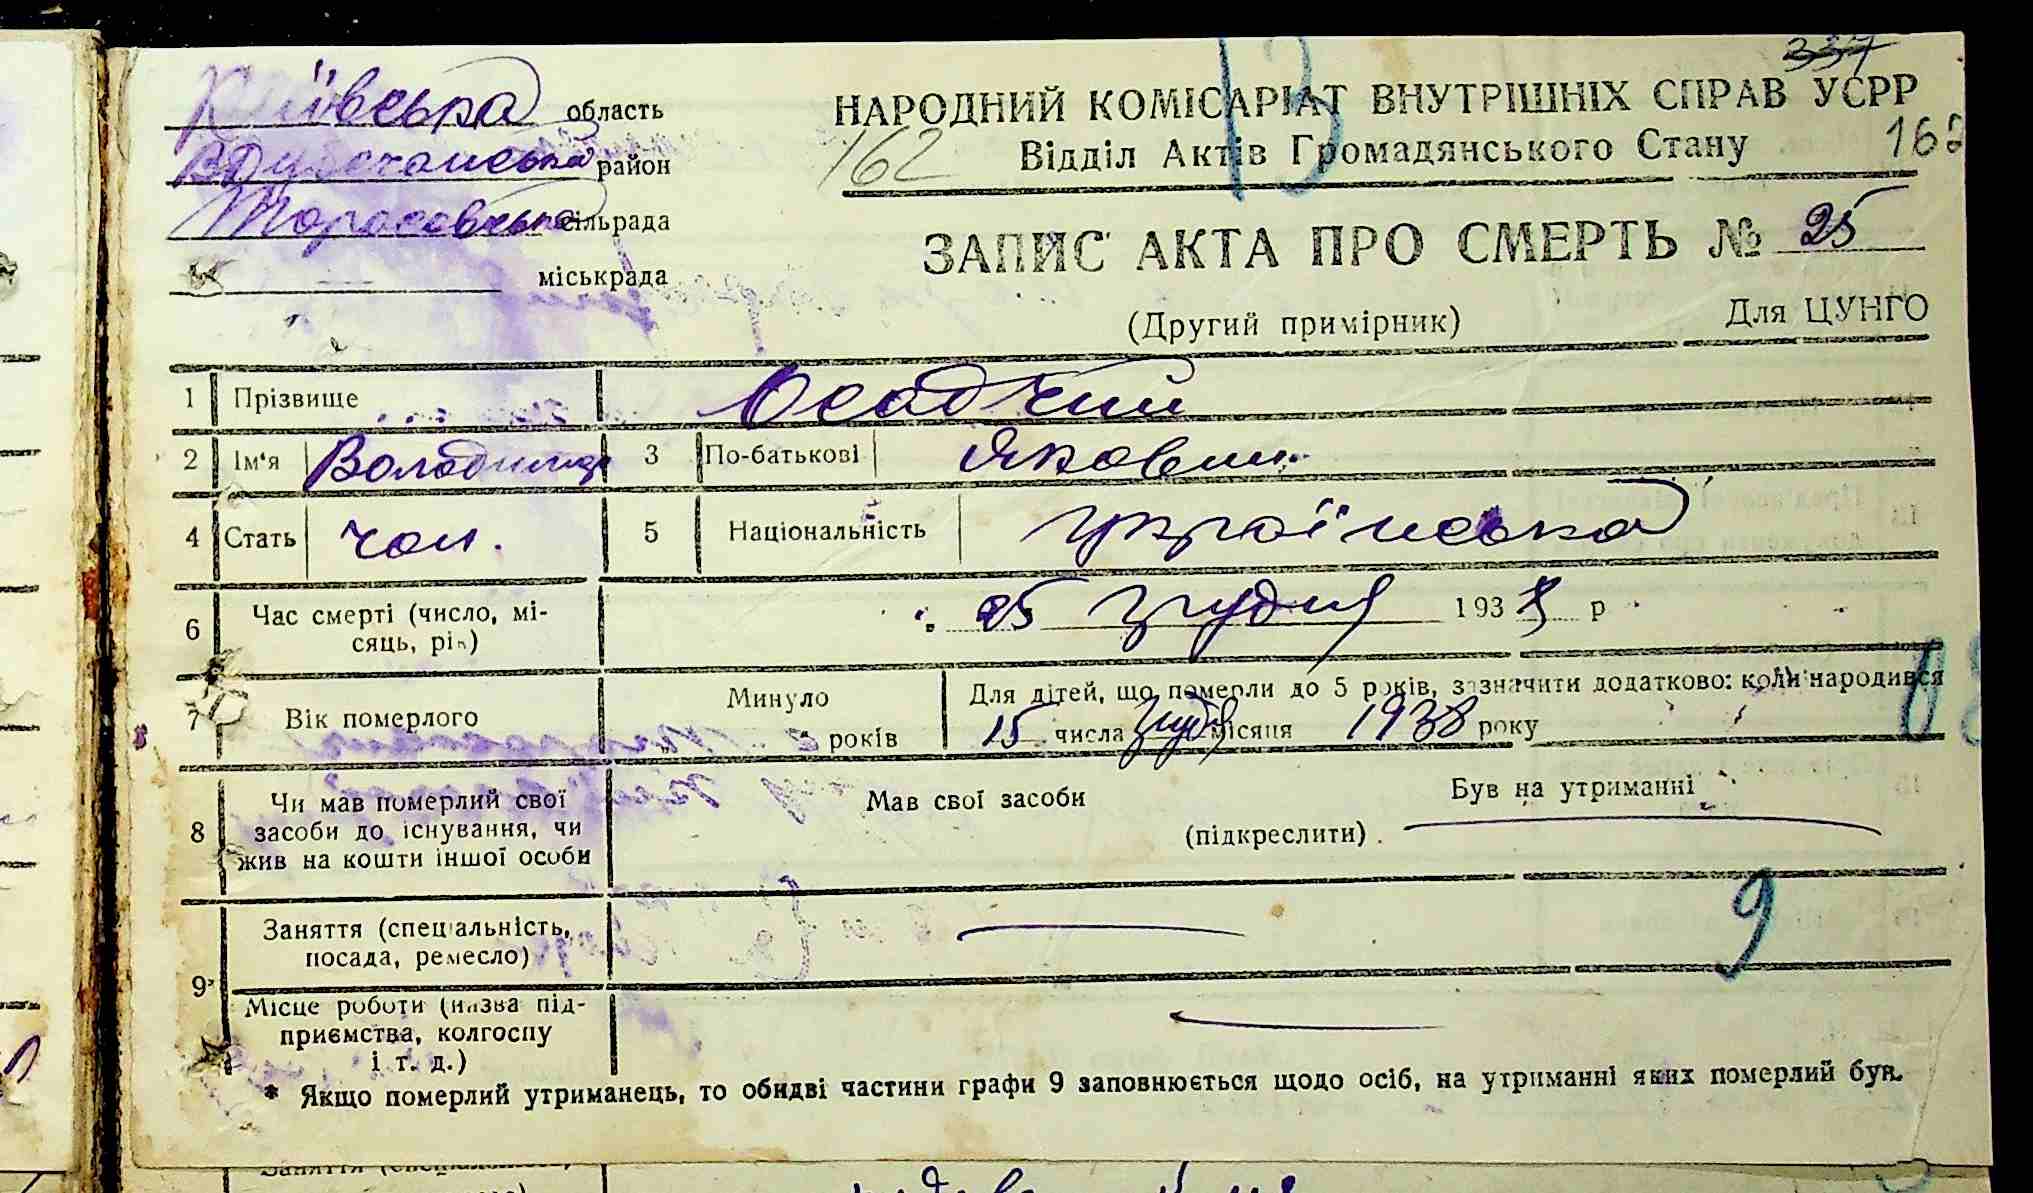 337
13
Київська область
НАРОДНИЙ КОМІСАРІАТ ВНУТРІШНІХ СПРАВ УСРР
район
162 Відділ Актів Громадянського Стану 162
Тарасовська сільрада
ЗАПИС АКТА ПРО СМЕРТЬ № 25
міськрада
(Другий примірник) Для ЦУНГО
1 Прізвище Осадчий
2 Ім'я Володимир 3 По-батькові Якович
4 Стать чол. 5 Національність українська
6 Час смерті (число, мі-
сяць, рік) 25 грудня 1938 р
7 Вік померлого Минуло років
Для дітей, що померли до 5 років, зазначити додатково: коли народився
15 числа груд місяця 1938 року
8 Чи мав померлий свої
засоби до існування, чи
жив на кошти іншої особи
Мав свої засоби Був на утриманні
(підкреслити)
9
9* Заняття (спеціальність,
посада, ремесло)
Місце роботи (назва під-
приємства, колгоспу
і т. д.)
* Якщо померлий утриманець, то обидві частини графи 9 заповнюється щодо осіб, на утриманні яких померлий був.